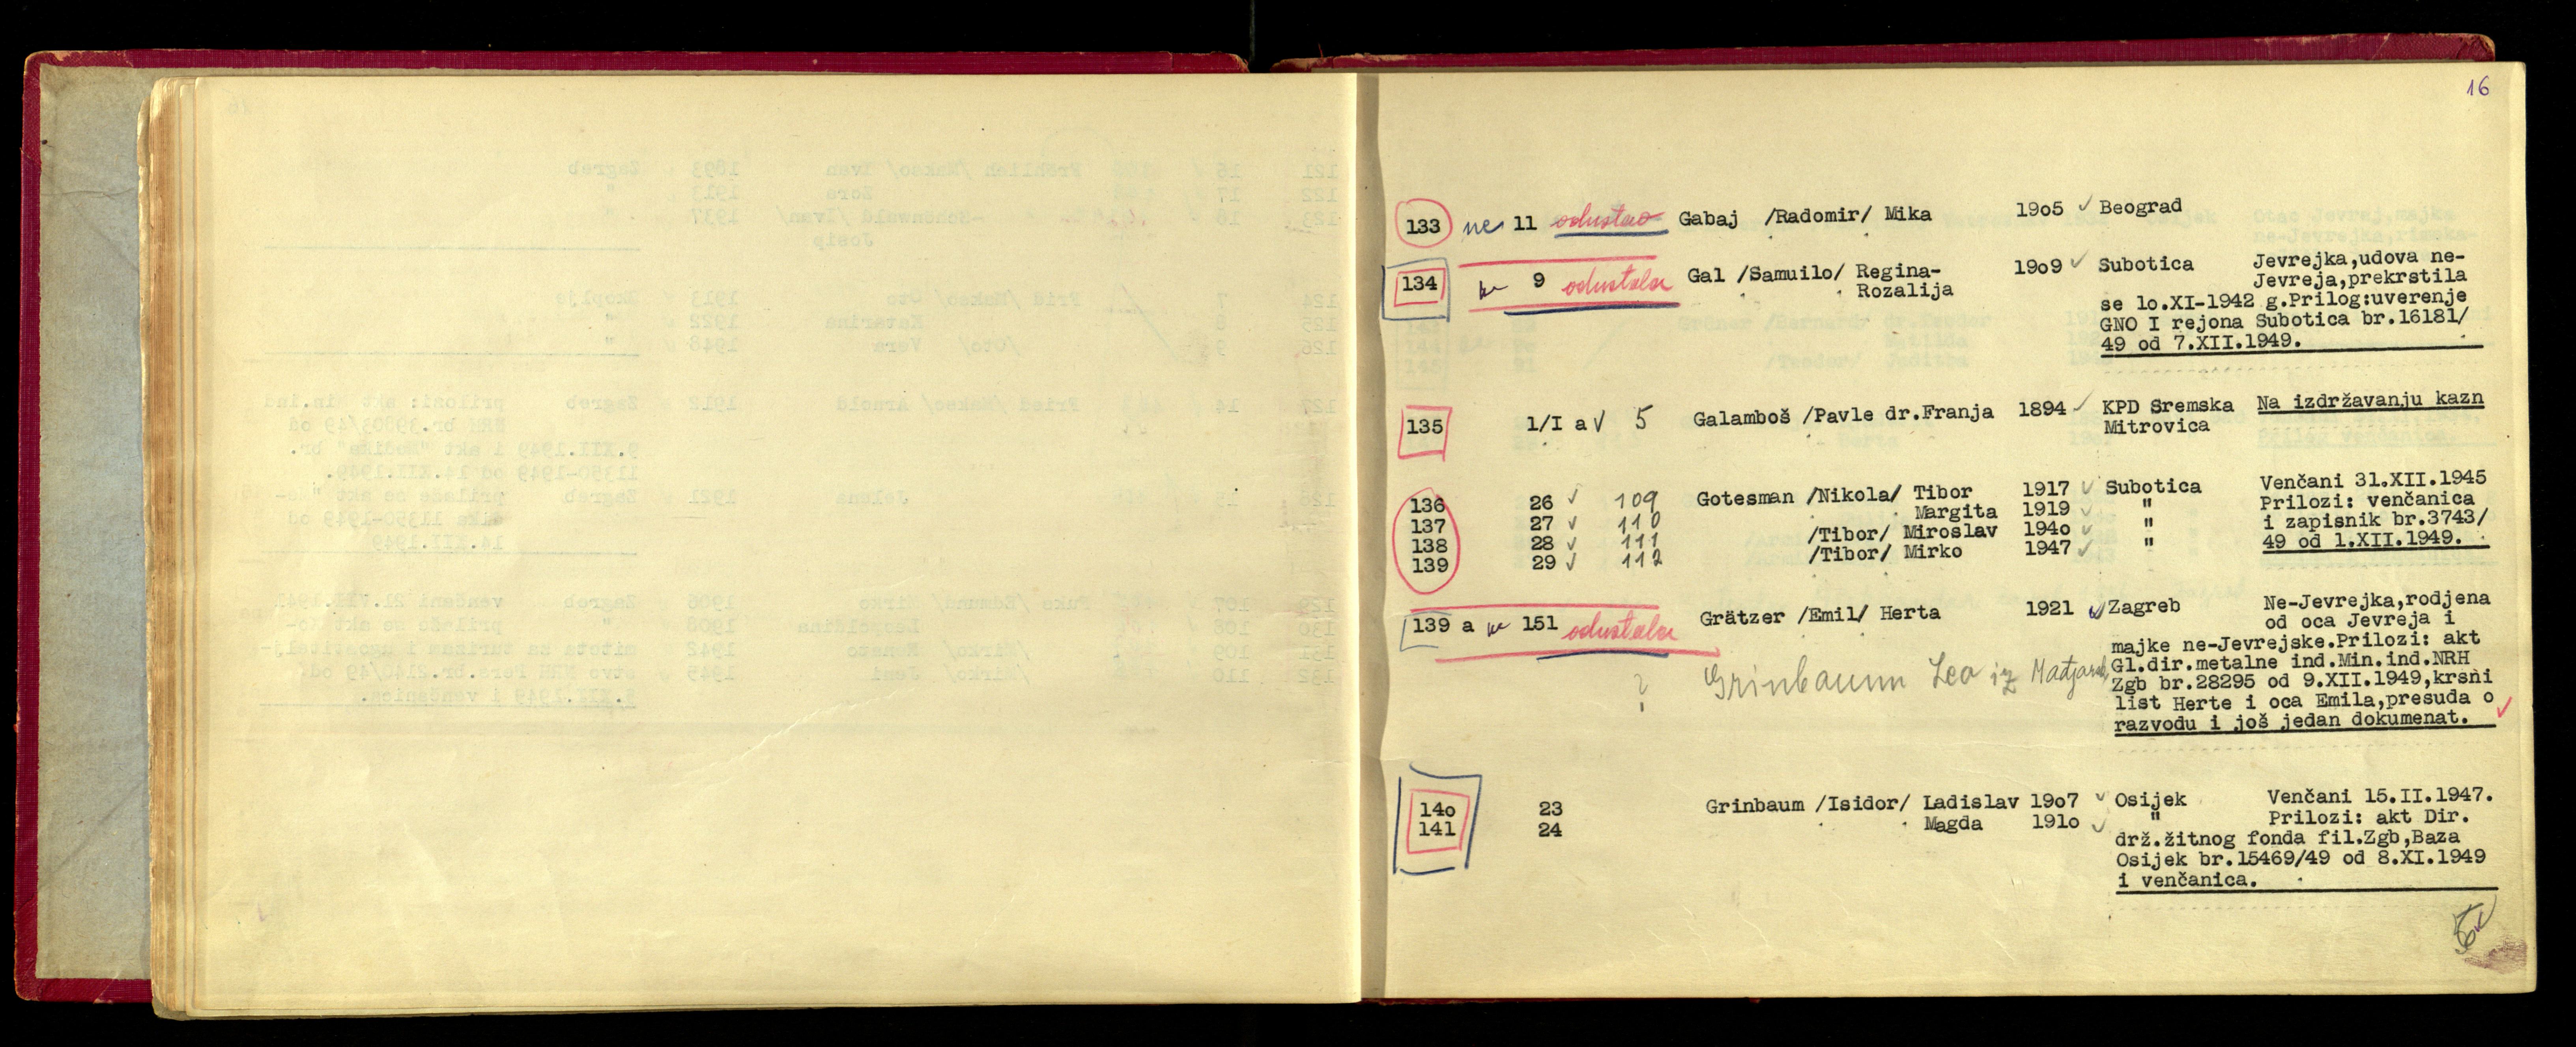 16
133 ne 11 odustao Gabaj /Radomir/ Mika 19o5 ✓ Beograd
134 9 odustala Gal /Samuilo/ Regina- 19o9 ✓ Subotica Jevrejka,udova ne-
Rozalija Jevreja,prekrstila
se lo.XI-1942 g.Prilog:uverenje
GNO I rejona Subotica br.16181/
49 od 7.XII.1949.
135 1/I a ✓ 5 Galamboš /Pavle dr.Franja 1894 ✓ KPD Sremska Na izdržavanju kazn
Mitrovica
136 26 ✓ 109 Gotesman /Nikola/ Tibor 1917 ✓ Subotica Venčani 31.XII.1945
137 27 ✓ 110 Margita 1919 ✓ " Prilozi: venčanica
138 28 ✓ 111 /Tibor/ Miroslav 194o ✓ " i zapisnik br.3743/
139 29 ✓ 112 /Tibor/ Mirko 1947 ✓ " 49 od 1.XII.1949.
139 a 151 odustala Grätzer /Emil/ Herta 1921 ✓ Zagreb Ne-Jevrejka,rodjena
od oca Jevreja i
majke ne-Jevrejske.Prilozi: akt
? Grinbaum Leo iz Gl.dir.metalne ind.Min.ind.NRH
Zgb br.28295 od 9.XII.1949,krsni
list Herte i oca Emila,presuda o
razvodu i još jedan dokumenat. ✓
14o 23 Grinbaum /Isidor/ Ladislav 19o7 ✓ Osijek Venčani 15.II.1947.
141 24 Magda 191o ✓ " Prilozi: akt Dir.
drž.žitnog fonda fil.Zgb,Baza
Osijek br.15469/49 od 8.XI.1949
i venčanica.